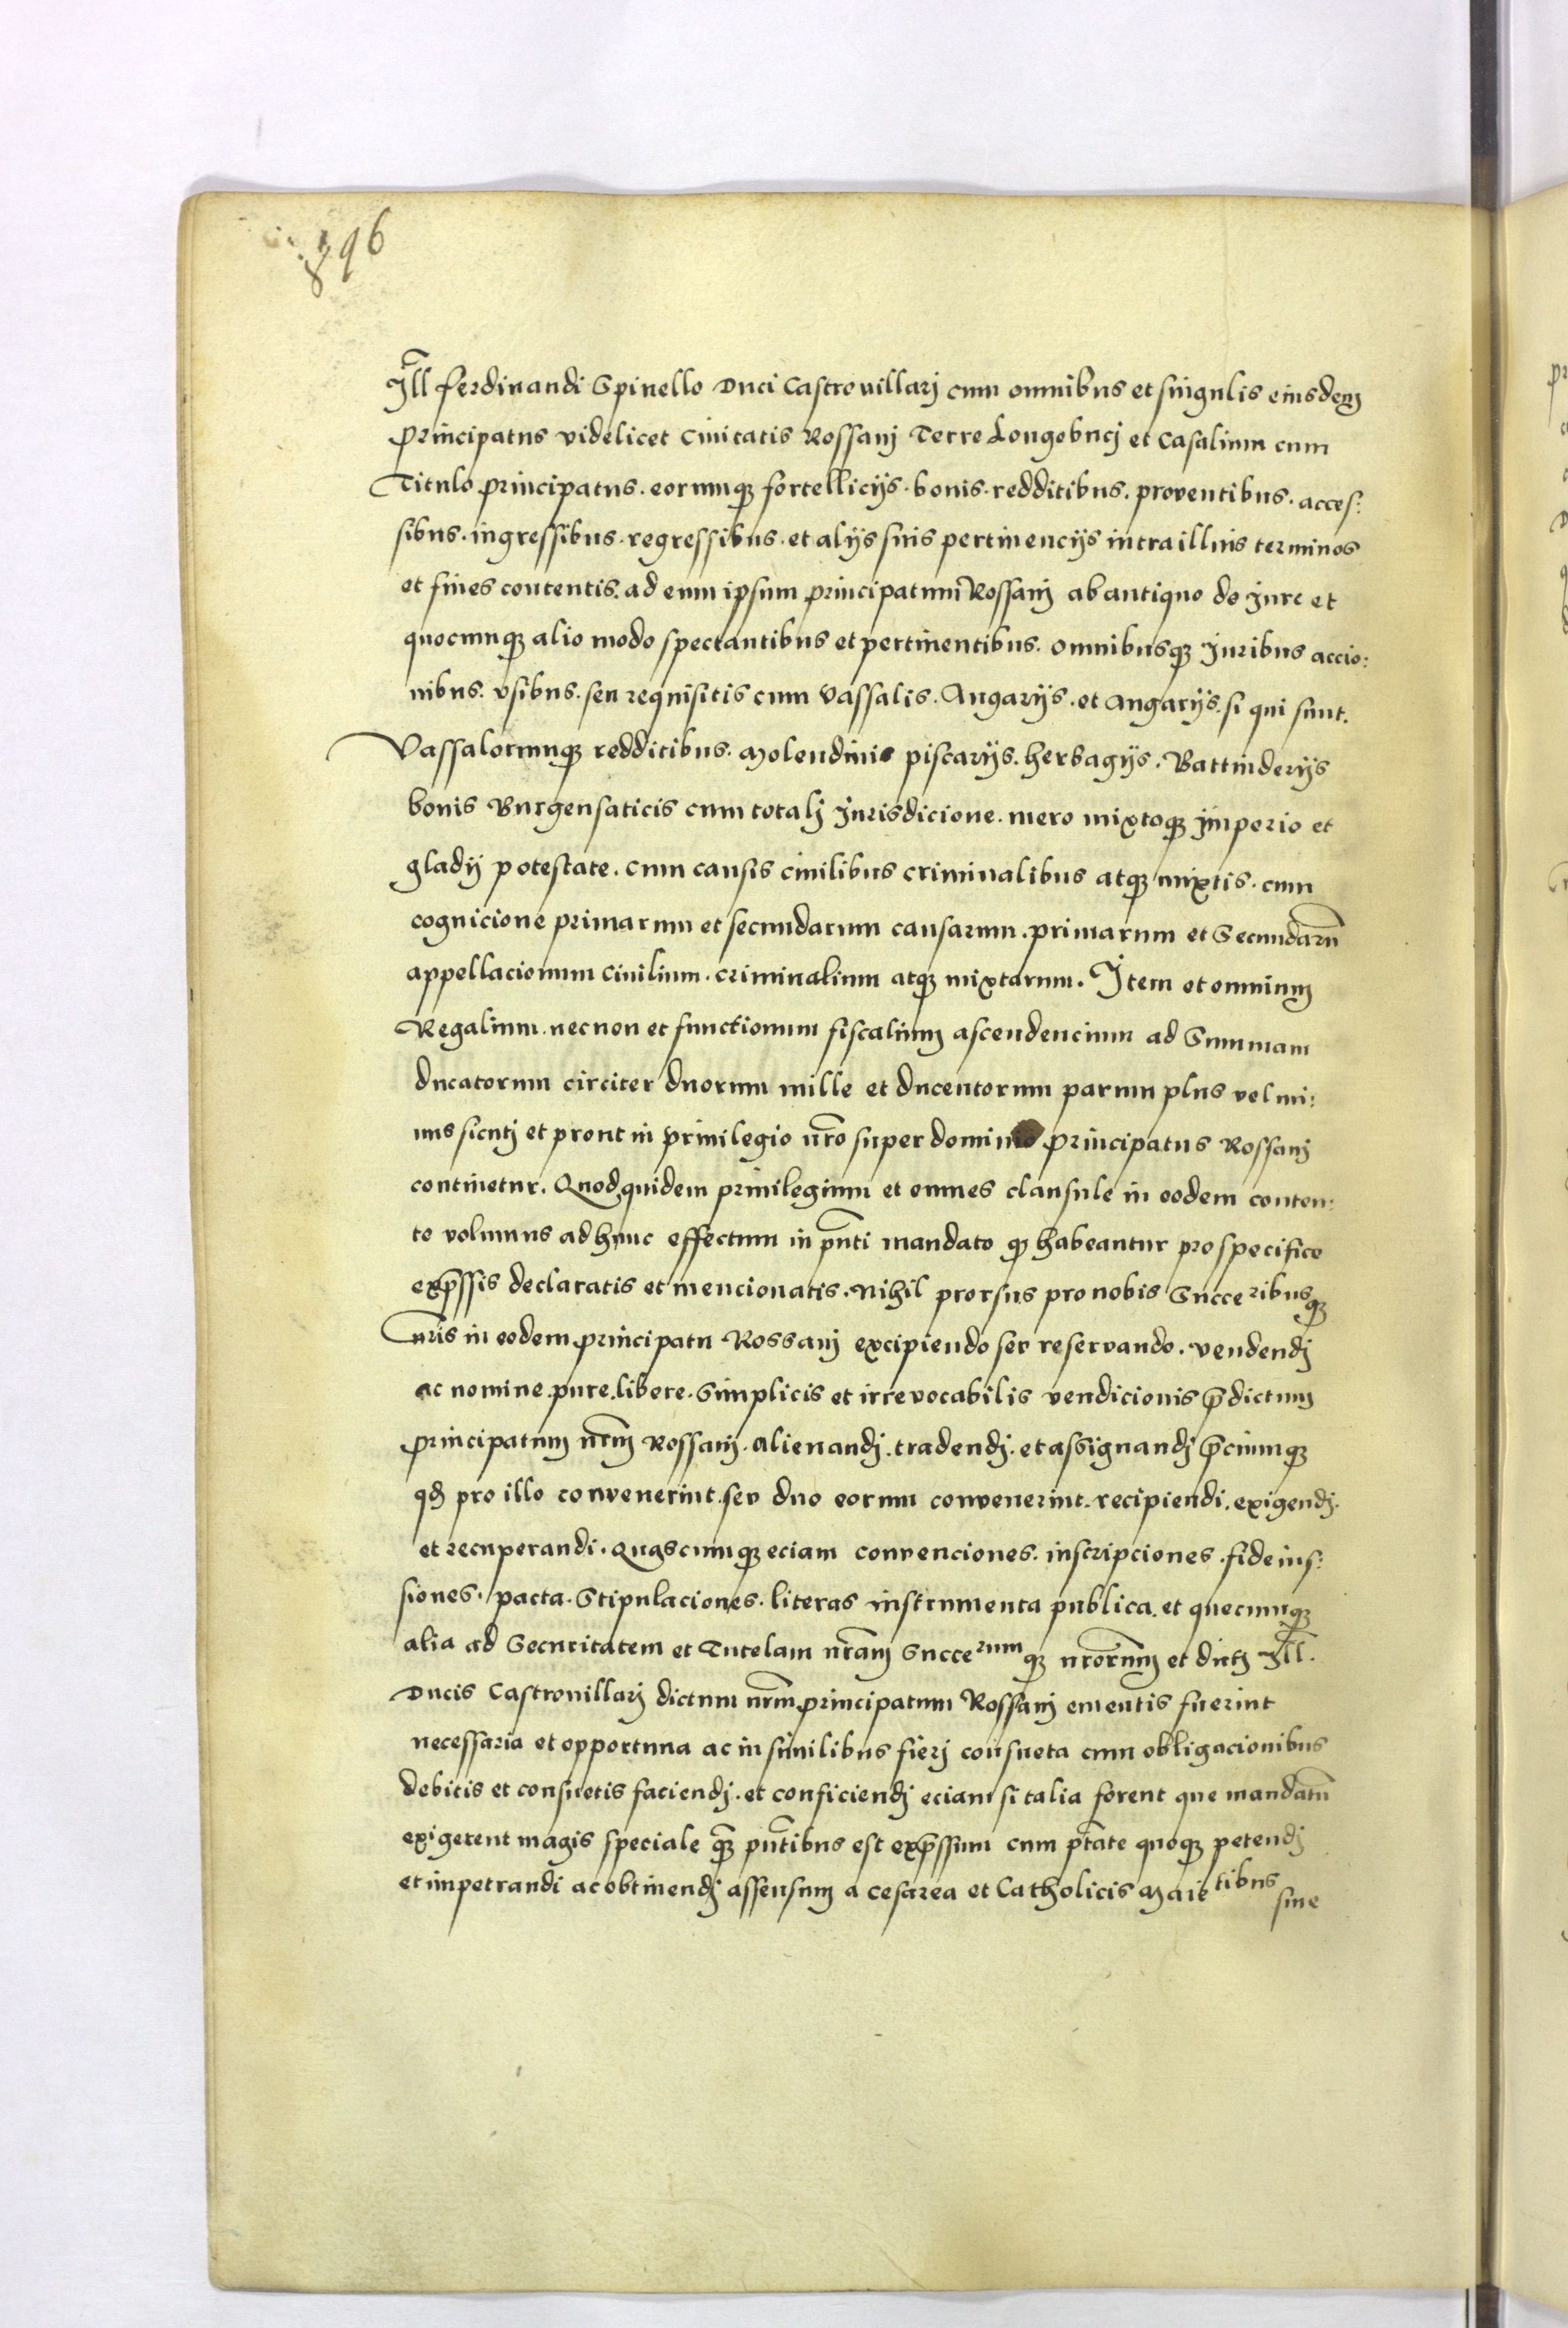 896
Ill̃ ferdinandi Spinello Duci Castrovillarj cum omnibus et singulis eiusdem
principatus videlicet Civitatis Rossanj Terre Longobucj et Casalium cum
Titulo principatus. eorumqꝫ fortellicijs. bonis. redditibus. proventibus. acces:
sibus. ingressibus. regressibus. et alijs suis pertinencijs intra illius terminos
et fines contentis. ad eum ipsum principatum Rossanj ab antiquo de Jure et
quocumqꝫ alio modo spectantibus et pertinentibus. omnibusqꝫ Juribus accio:
nibus. vsibus. seu requisitis cum Vassalis. Angarijs. et Angarijs. si qui sunt.
Vassalorumqꝫ redditibus. Molendinis piscarijs. herbagijs. Battinderijs
bonis Burgensaticis cum totalj Jurisdicione. mero mixtoqꝫ imperio et
gladij potestate. cum causis civilibus criminalibus atqꝫ mixtis. cum
cognicione primarum et secundarum causarum. primarum et Secundarũ
appellacionum Civilium. criminalium atqꝫ mixtarum. Item et omnium
Regalium. necnon et functionum fiscalium ascendencium ad Summam
ducatorum circiter duorum mille et ducentorum parum plus vel mi:
nus sicutj et prout in privilegio nr̃o super dominio principatus Rossanj
continetur. Quod quidem privilegium et omnes clausule in eodem conten:
te volumus ad hunc effectum in pñti mandato qꝫ habeantur pro specifice
exp̃ssis declaratis et mencionatis. Nihil prorsus pro nobis Succeribusqꝫ
nr̃is in eodem principatu Rossanj excipiendo seu reservando. vendendj
ac nomine pure. libere. Simplicis et irrevocabilis vendicionis p̃dictum
principatum nr̃m Rossanj. alienandj. tradendj. et assignandj p̃ciumqꝫ
qd̃ pro illo convenerint. seu duo eorum convenerint. recipiendi. exigendj.
et recuperandi. Quascumqꝫ eciam convenciones. inscripciones. fideius:
siones. pacta. Stipulaciones. literas instrumenta publica. et quecumqꝫ
alia ad Securitatem et Tutelam nr̃am Succerumqꝫ nr̃orum et dictj Ill̃.
Ducis Castrovillarj dictum nr̃m principatum Rossanj ementis fuerint
necessaria et opportuna ac in similibus fierj consueta cum obligacionibus
debitis et consuetis faciendj. et conficiendj eciam si talia forent que mandatũ
exigerent magis speciale qꝫ̃ pñtibus est exp̃ssum cum pt̃ate quoqꝫ petendj
et impetrandi ac obtinendj assensum a cesarea et Catholicis Maietibus
sine